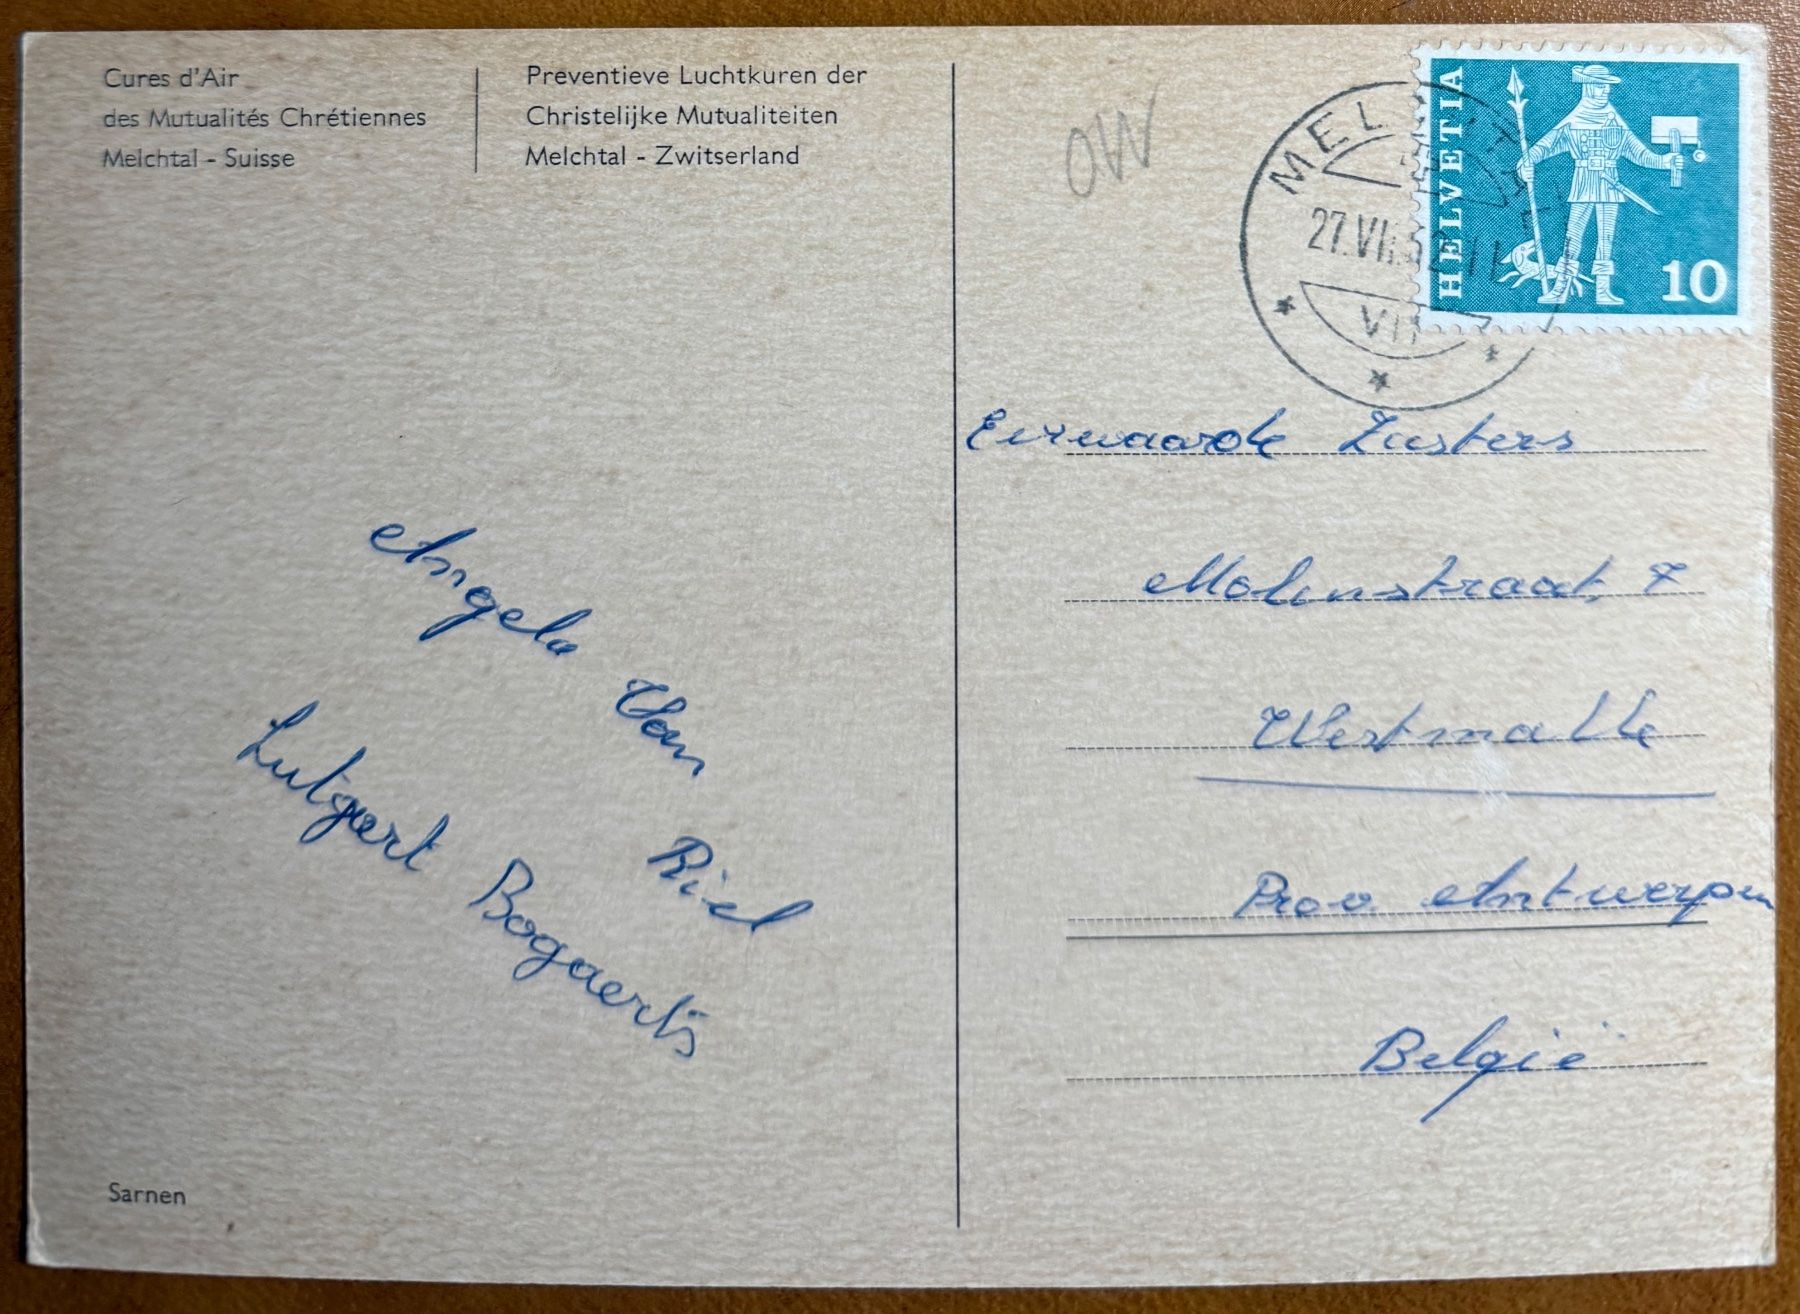 Cures d'Air
des Mutualités Chrétiennes
Melchtal - Suisse
Preventieve Luchtkuren der
Christelijke Mutualiteiten
Melchtal - Zwitserland
OW
27.VII
VII
HELVETIA
10
Eerwaarde Zusters
Molenstraat, 7
Westmalle
Prov Antwerpen
België
Angela Van Riel
Lutgart Bogaerts
Sarnen